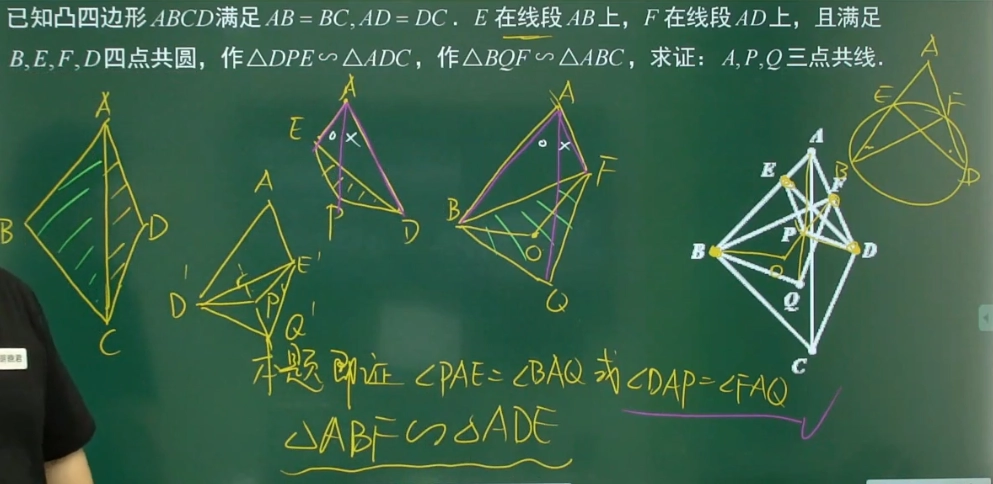 已知凸四边形ABCD满足AB=BC,AD=DC. E在线段AB上, F在线段AD上, 且满足
B,E,F,D四点共圆, 作△DPE∽△ADC, 作△BQF∽△ABC, 求证: A,P,Q三点共线.
A
B
D
C
A
E
P
D
A
D'
E'
P'
Q'
A
B
F
O
Q
A
E
F
B
D
A
E
F
B
P
D
O
Q
C
本题即证 ∠PAE=∠BAQ或∠DAP=∠FAQ
△ABF∽△ADE